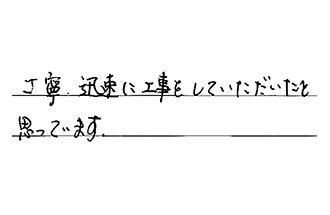 丁寧.迅速に工事をしていただいたと
思っています.